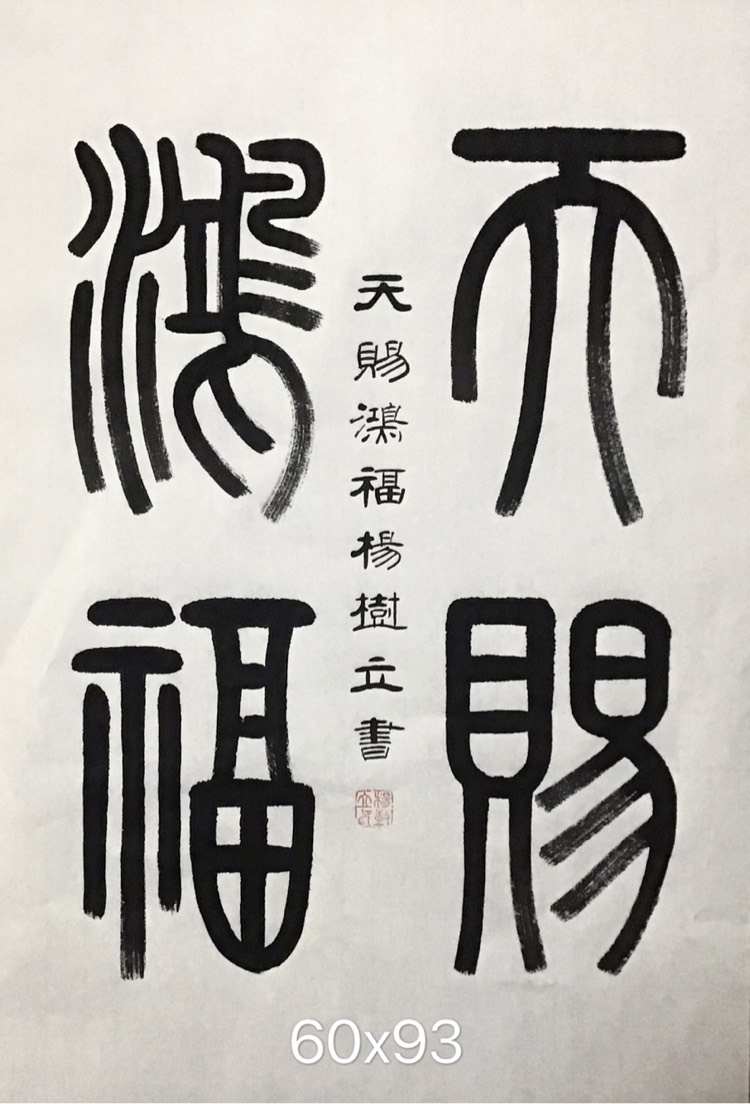 天賜
鴻福
天賜鴻福楊樹立書
60x93